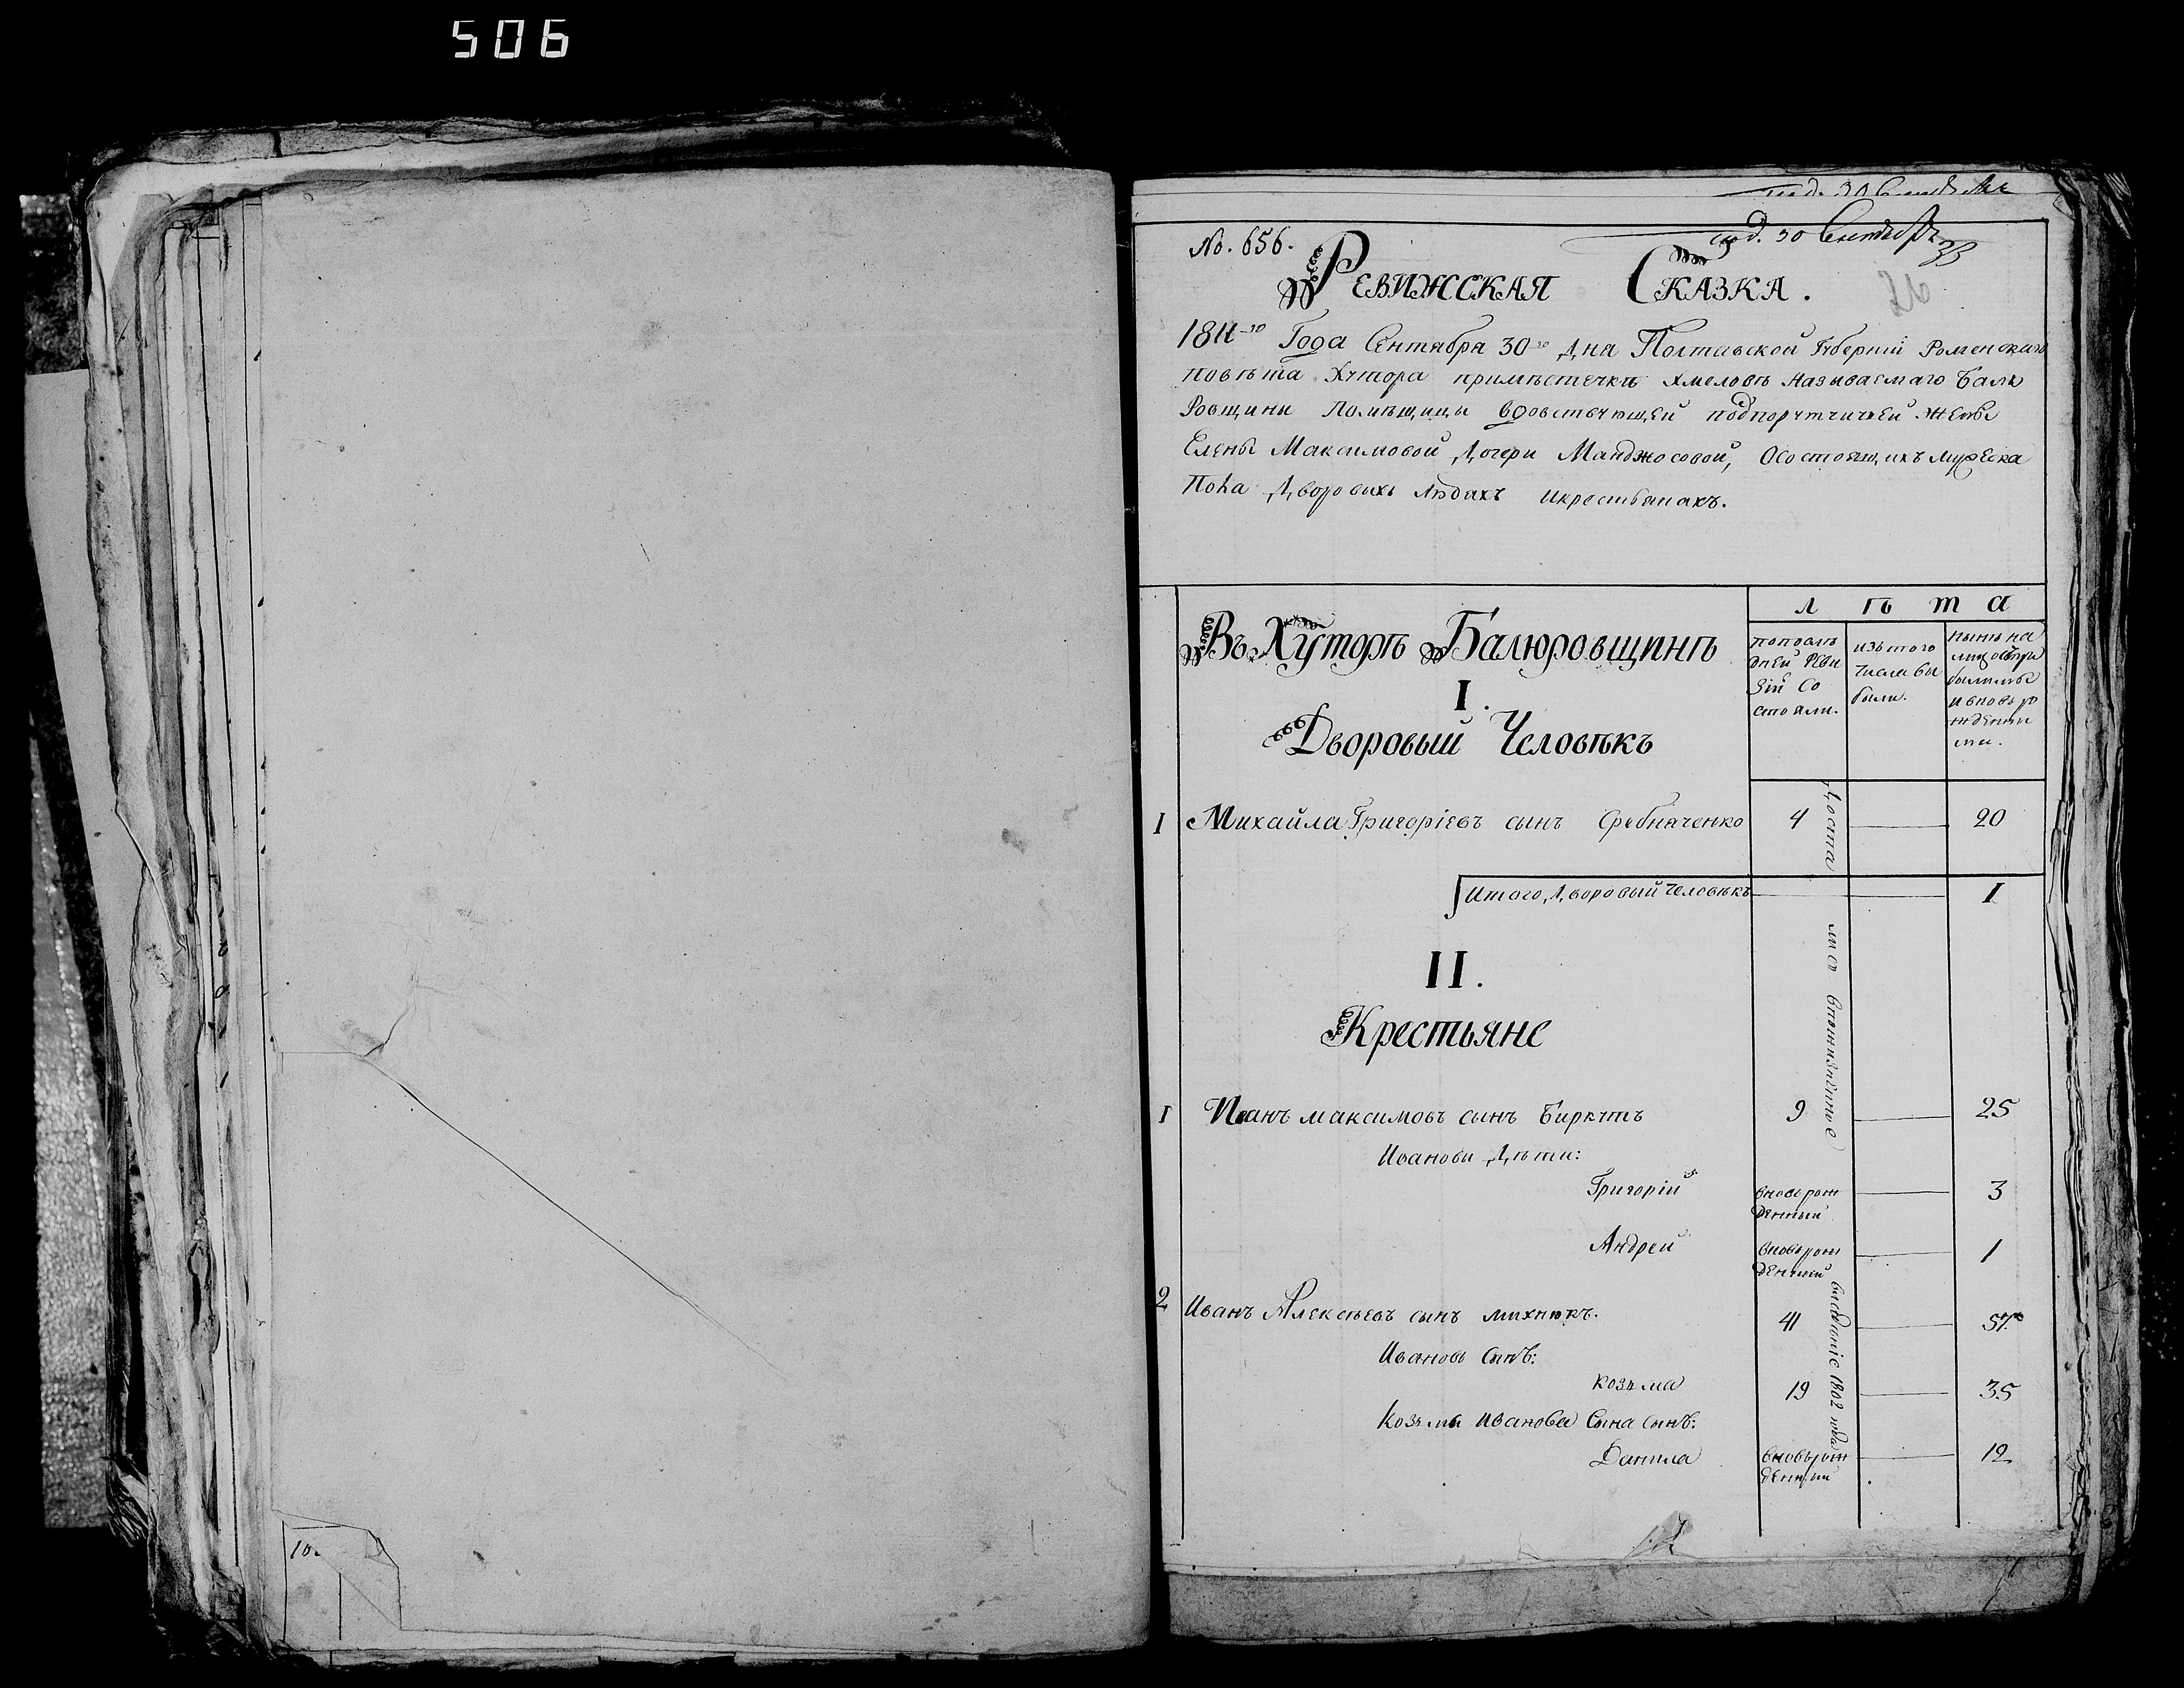 506
под. 30 Сентября
No. 656.
Ревижская Сказка.
26
1811-го Года Сентября 30-го Дна Полтавской Губерній Роменскаго
повѣта Хутора примѣстечкѣ Хмеловѣ называемаго Балю
ровщины Помѣщицы вдовствующей подпорутчичей жены
Елены Максимовой Дочери Манджосовой, Осостоящихъ мужеска
Пола Дворовыхъ людахъ икрестьанахъ.
лѣта
попослѣ
дней Реви
зіи Со
стояли.
изътого
числа вы
были.
нынѣ на
лицо
ми.
Въ Хуторѣ Балюровщинѣ
I.
Дворовый Человѣкъ
1 Михайла Григоріевъ сынъ Сребняченко 4 20
Итого, Дворовый Человѣкъ 1
II.
Крестьяне
1 Иванъ максимовъ сынъ Биркутъ 9 25
Иванови Дѣти:
Григорій вноворож 3
денный
Андрей вновьрож 1
денный
2 Иванъ Алексѣевъ сынъ михнюкъ. 41 57
Ивановъ Сынъ:
козьма 19 35
Козьмы Иванова Сына Сынъ:
Данила вновьрож 12
денный
1802 года
10.